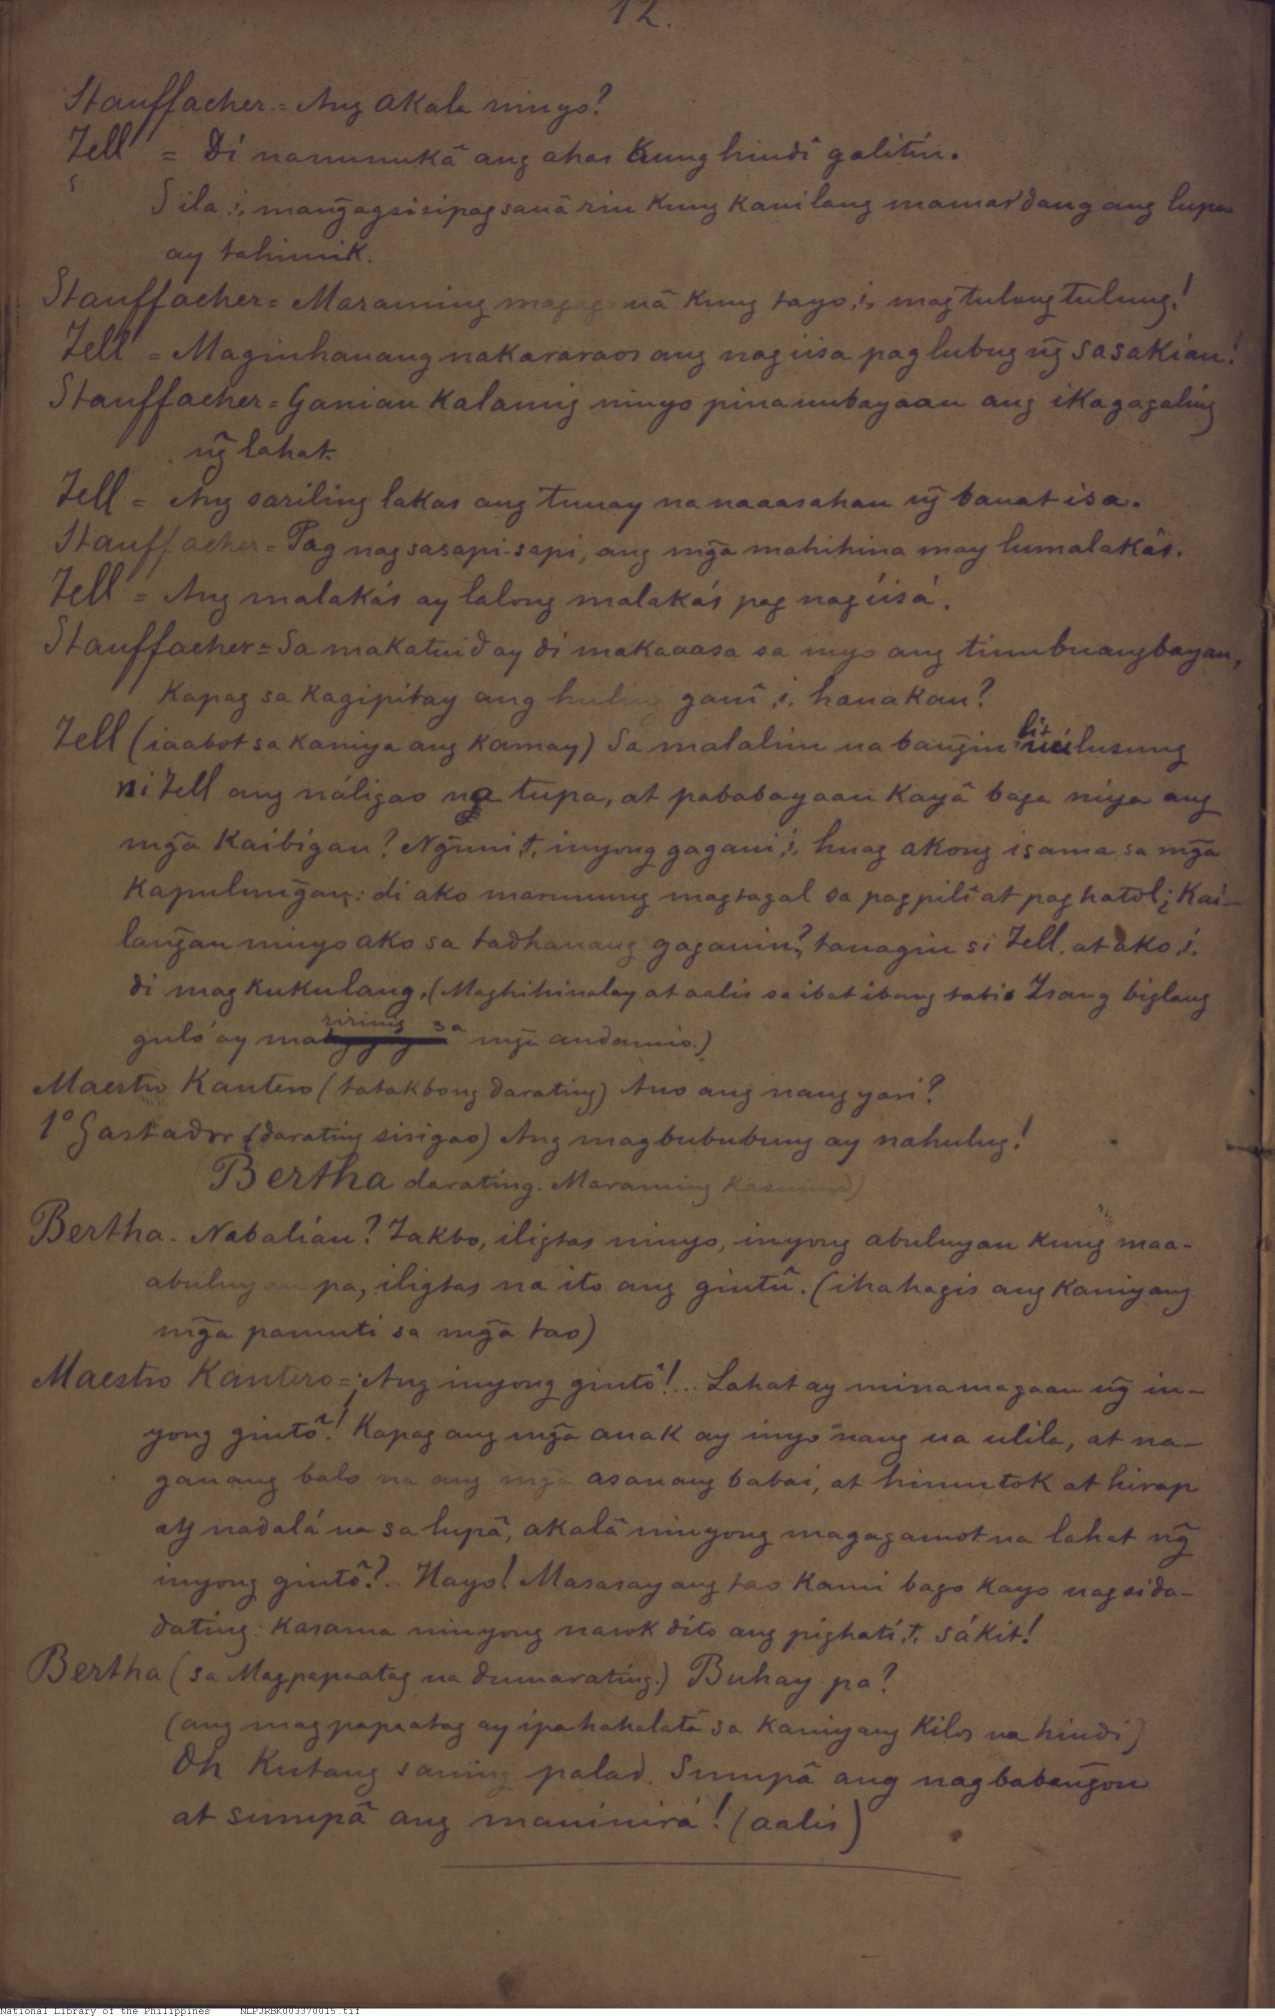 12.
Stauffacher = Ang akala ninyo?
Tell = Di nanunukâ ang ahas kung hindî galitín.
Sila,i, mang̃agsisipagsauâ rin kung kanilang mamasdang ang lupa
ay tahimik.
Stauffacher = Maraming magagauâ kung tayo,i, magtulongtulung!
Tell = Maginhauang nakararaos ang nagiisa paglubug ng̃ sasakian!
Stauffacher = Ganian kalamig ninyo pinanubayaan ang ikagagaling
ng̃ lahat.
Tell = Ang sariling lakas ang tunay na naaasahan ng̃ bauat isa.
Stauffacher = Pag nagsasapi-sapi, ang mg̃a mahihina may lumalakás.
Tell = Ang malakás ay lalong malakás pag nagíisá.
Stauffacher = Sa makatuid ay di makaaasa sa inyo ang tinubuangbayan,
kapag sa kagipitay ang huling gauî ,i, hauakan?
Tell (iaabot sa kaniya ang kamay) Sa malalim na bang̃in lúlusung
ni Tell ang náligao na tupa, at pababayaan kayâ baga niya ang
mg̃a kaibigan? Ng̃uni,t, inyong gagaui,i, huag akong isama sa mg̃a
kapulung̃an: di ako marunung magtagal sa pagpilî at paghatol; Kai-
lang̃an ninyo ako sa tadhanang gagauin?, tauagin si Tell, at ako,i,
di magkukulang. (Maghihiualay at aalis sa ibat ibang tabi. Isang biglang
guló ay maririnig sa mg̃a andamio.)
Maestro Kantero (tatakbong darating) Ano ang nangyari?
1º Gastador (darating sisigao) Ang magbububung ay nahulug!
Bertha darating. Maraming kasunod)
Bertha - Nabalían? Takbo, iligtas ninyo, inyong abuluyan kung maa-
abuluyan pa, iligtas na ito ang gintû. (ihahagis ang kaniyang
mg̃a pamuti sa mg̃a tao)
Maestro Kantero = ¡Ang inyong gintô!.. Lahat ay minamagaan ng̃ in-
yong gintô! Kapag ang mg̃a anak ay inyo nang na ulila, at na-
gauang balo na ang mg̃a asauang babai, at hinuntok at hirap
ay nadalá na sa lupâ, akalâ ninyong magagamot na lahat ng̃
inyong gintô?.. Hayo! Masasayang tao kami bago kayo nagsida-
dating: kasama ninyong nasok díto ang pighatí,t, sákit!
Bertha (sa Magpapaatag na dumarating.) Buhay pa?
(ang magpapaatag ay ipahahalatâ sa kaniyang kilos na hindi)
Oh Kutang saning palad. Sumpâ ang nagbabang̃on
at sumpâ ang maninirá! (aalis)
National Library of the Philippines NLPJRBK003370015.tif